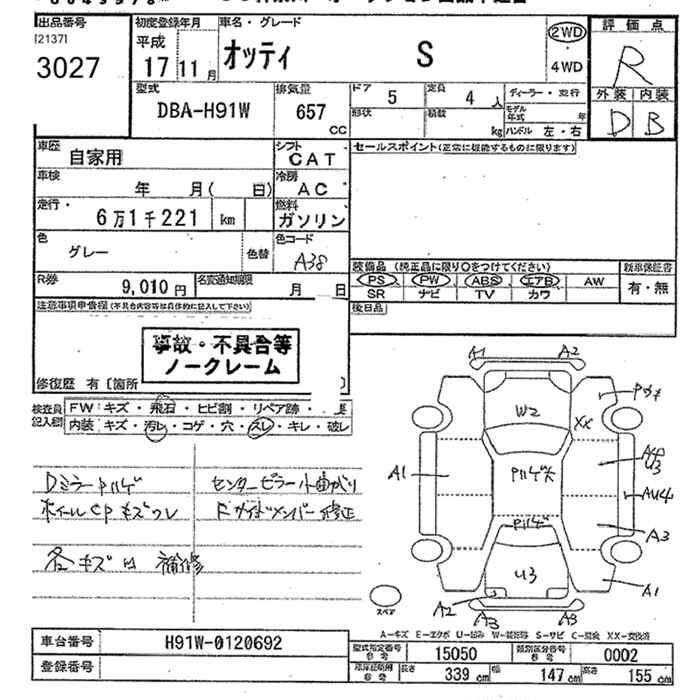 出品番号
[2137]
3027
初度登録年月
平成
17 11 月
車名・グレード
オッティ S
2WD
・
4WD
評価点
R
外装 内装
D B
型式
DBA-H91W
排気量
657
CC
ドア 5
定員 4 人
形状
積載 kg
ディーラー・並行
モデル年式 年
ハンドル 左・右
車歴
自家用
シフト
CAT
車検
年 月( 日)
冷房
AC
走行・
6万1千221 km
燃料
ガソリン
色
グレー
色替
色コード
A38
R券
9,010円
名変通知期限
月 日
セールスポイント(正常に機能するものに限ります)
装備品 (純正品に限り○をつけてください)
PS PW ABS エアB AW
SR ナビ TV カワ
新車保証書
有・無
後日品
注意事項申告欄(不具合内容等は具体的に記入して下さい)
事故・不具合等
ノークレーム
修復歴 有〔箇所 〕
検査員記入欄
FW: キズ・飛石・ヒビ割・リペア跡・
内装: キズ・汚レ・コゲ・穴・スレ・キレ・破レ
Dミラー
センターピラー小曲がり
ホイールCPキズワレ
修正
各キズ凹 補修
A1 A2
W2
XX
A1
U3
AU4
A3
U3
A1
A2
A3 A3
スペア
A−キズ E−エクボ U−凹み S−サビ XX−交換済
車台番号
H91W-0120692
登録番号
型式指定番号 参考
15050
類別区分番号 参考
0002
長さ 339 cm 幅 147 cm 高さ 155 cm